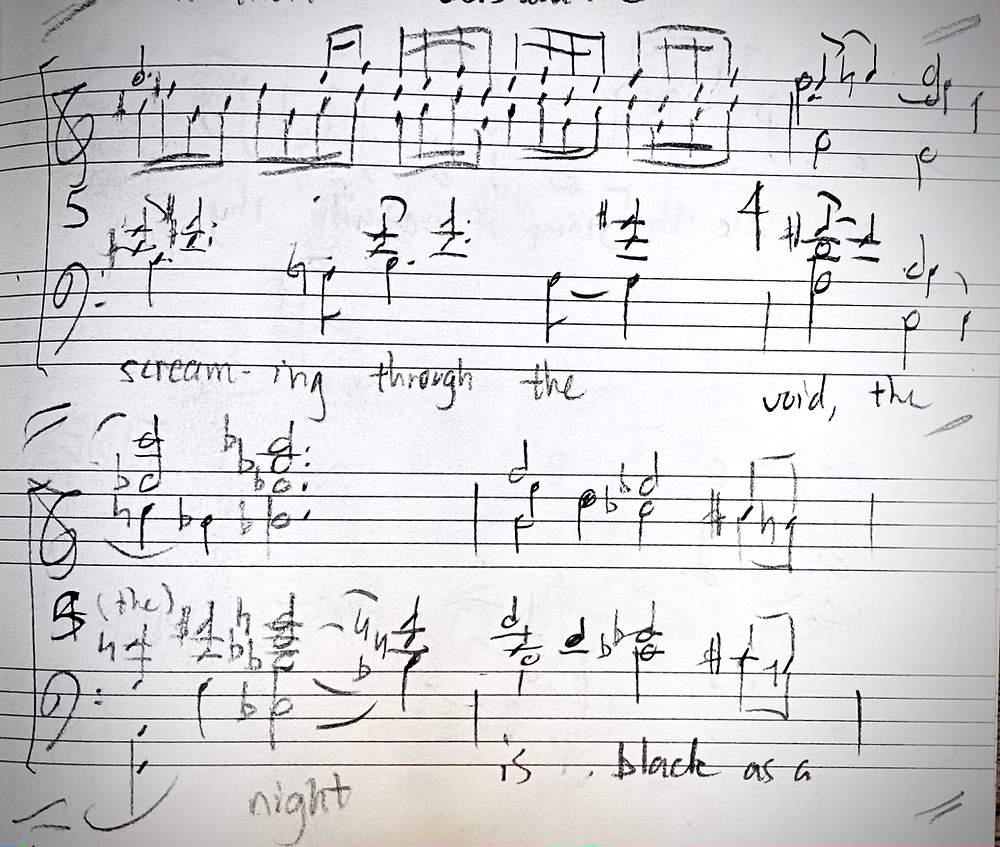 5
4
scream-ing through the void, the
5 (the)
night is black as a